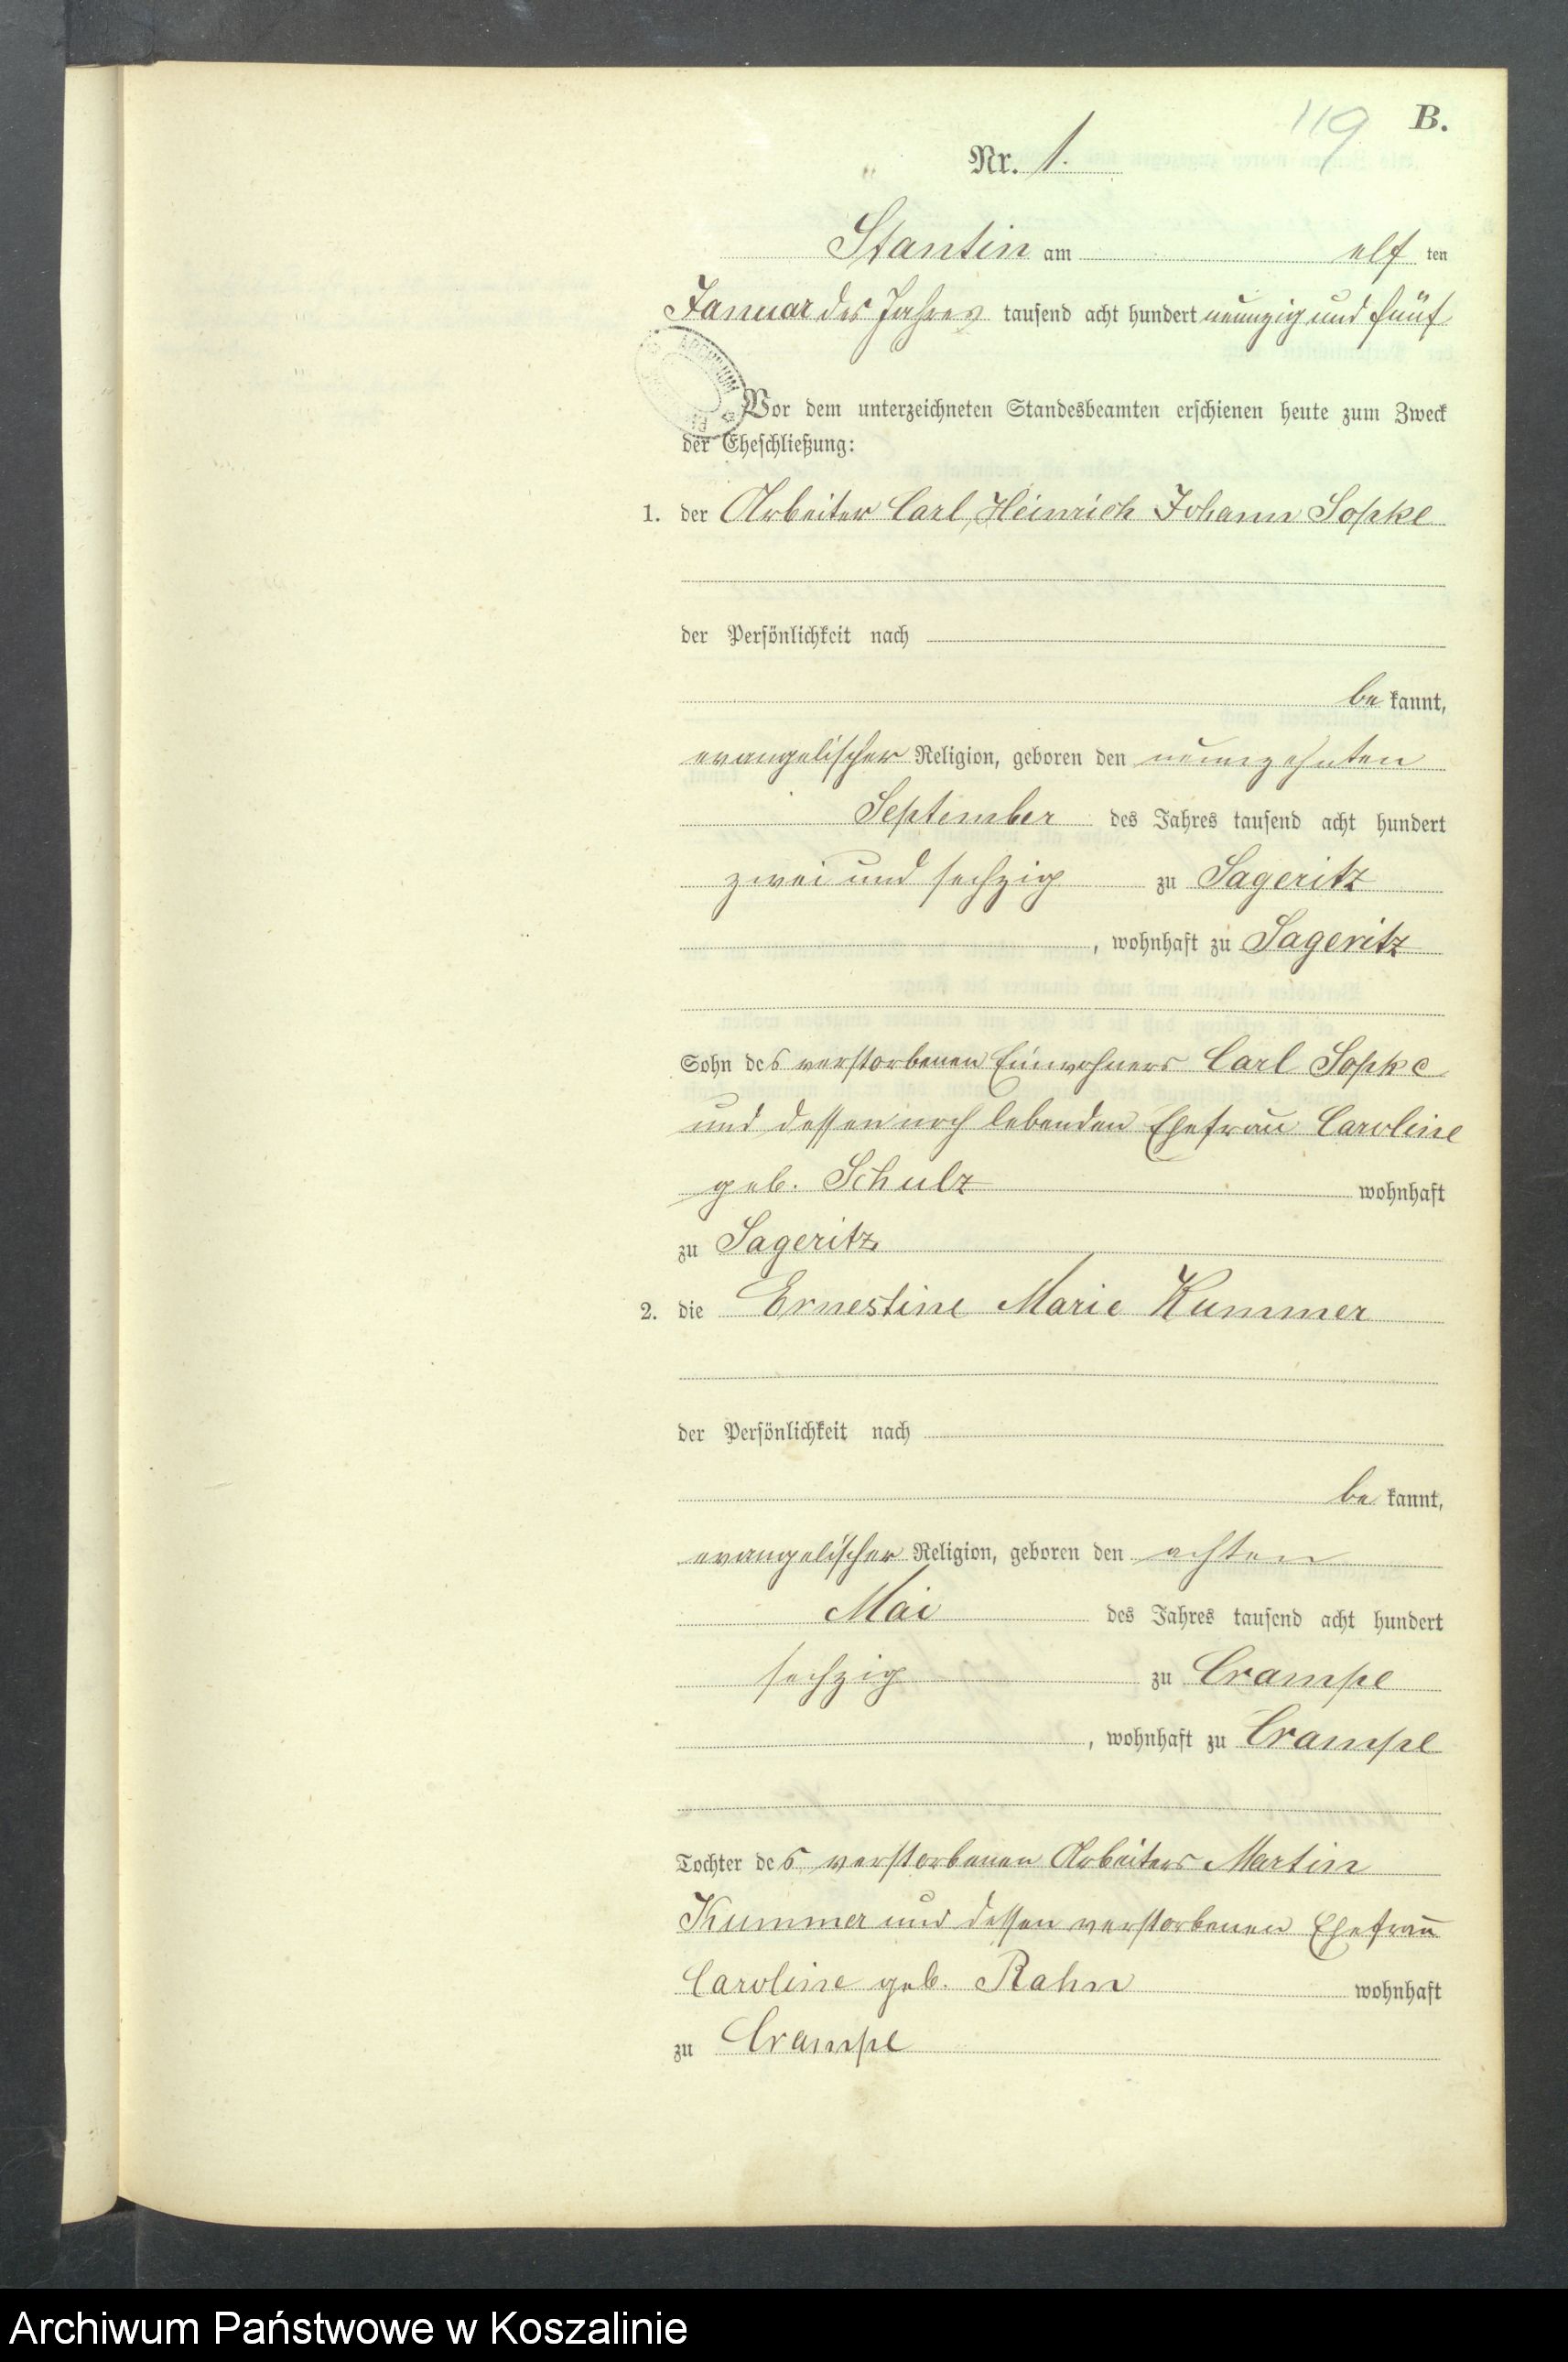 119 B.
Nr. 1.
Stantin am elf ten
Januar des Jahres tausend acht hundert neunzig und fünf
ARCHIWUM
Vor dem unterzeichneten Standesbeamten erschienen heute zum Zweck
der Eheschließung:
1. der Arbeiter Carl Heinrich Johann Sopke
der Persönlichkeit nach
be kannt,
evangelischer Religion, geboren den neunzehnten
September des Jahres tausend acht hundert
zwei und sechzig zu Sageritz
, wohnhaft zu Sageritz
Sohn des verstorbenen Einwohners Carl Sopke
und dessen noch lebenden Ehefrau Caroline
geb. Schulz wohnhaft
zu Sageritz
2. die Ernestine Marie Kummer
der Persönlichkeit nach
be kannt,
evangelischer Religion, geboren den achten
Mai des Jahres tausend acht hundert
sechzig zu Crampe
, wohnhaft zu Crampe
Tochter des verstorbenen Arbeiters Martin
Kummer und dessen verstorbenen Ehefrau
Caroline geb. Rahn wohnhaft
zu Crampe
Archiwum Państwowe w Koszalinie